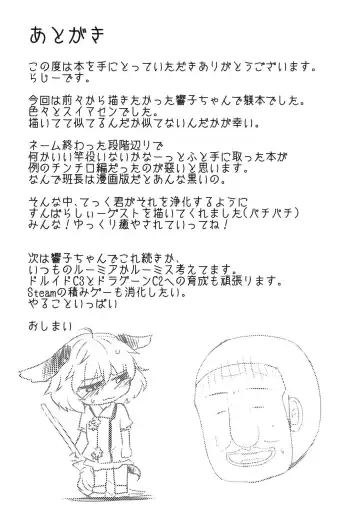 あとがき
この度は本を手にとっていただきありがとうございます。
らじーです。
今回は前々から描きたかった響子ちゃんで躾本でした。
色々とスイマセンでした。
描いてて似てるんだか似てないんだかが辛い。
ネーム終わった段階辺りで
何かいい竿役いないかなーっとふと手に取った本が
例のチンチロ編だったのが悪いと思います。
なんで班長は漫画版だとあんな黒いの。
そんな中、てっく君がそれを浄化するように
すんばらしぃーゲストを描いてくれました(パチパチ)
みんな！ゆっくり癒やされていってね！
次は響子ちゃんでこれ続きか、
いつものルーミアかルーミス考えてます。
ドルイドC3とドラゲーンC2への育成も頑張ります。
Steamの積みゲーも消化したい。
やることいっぱい
おしまい